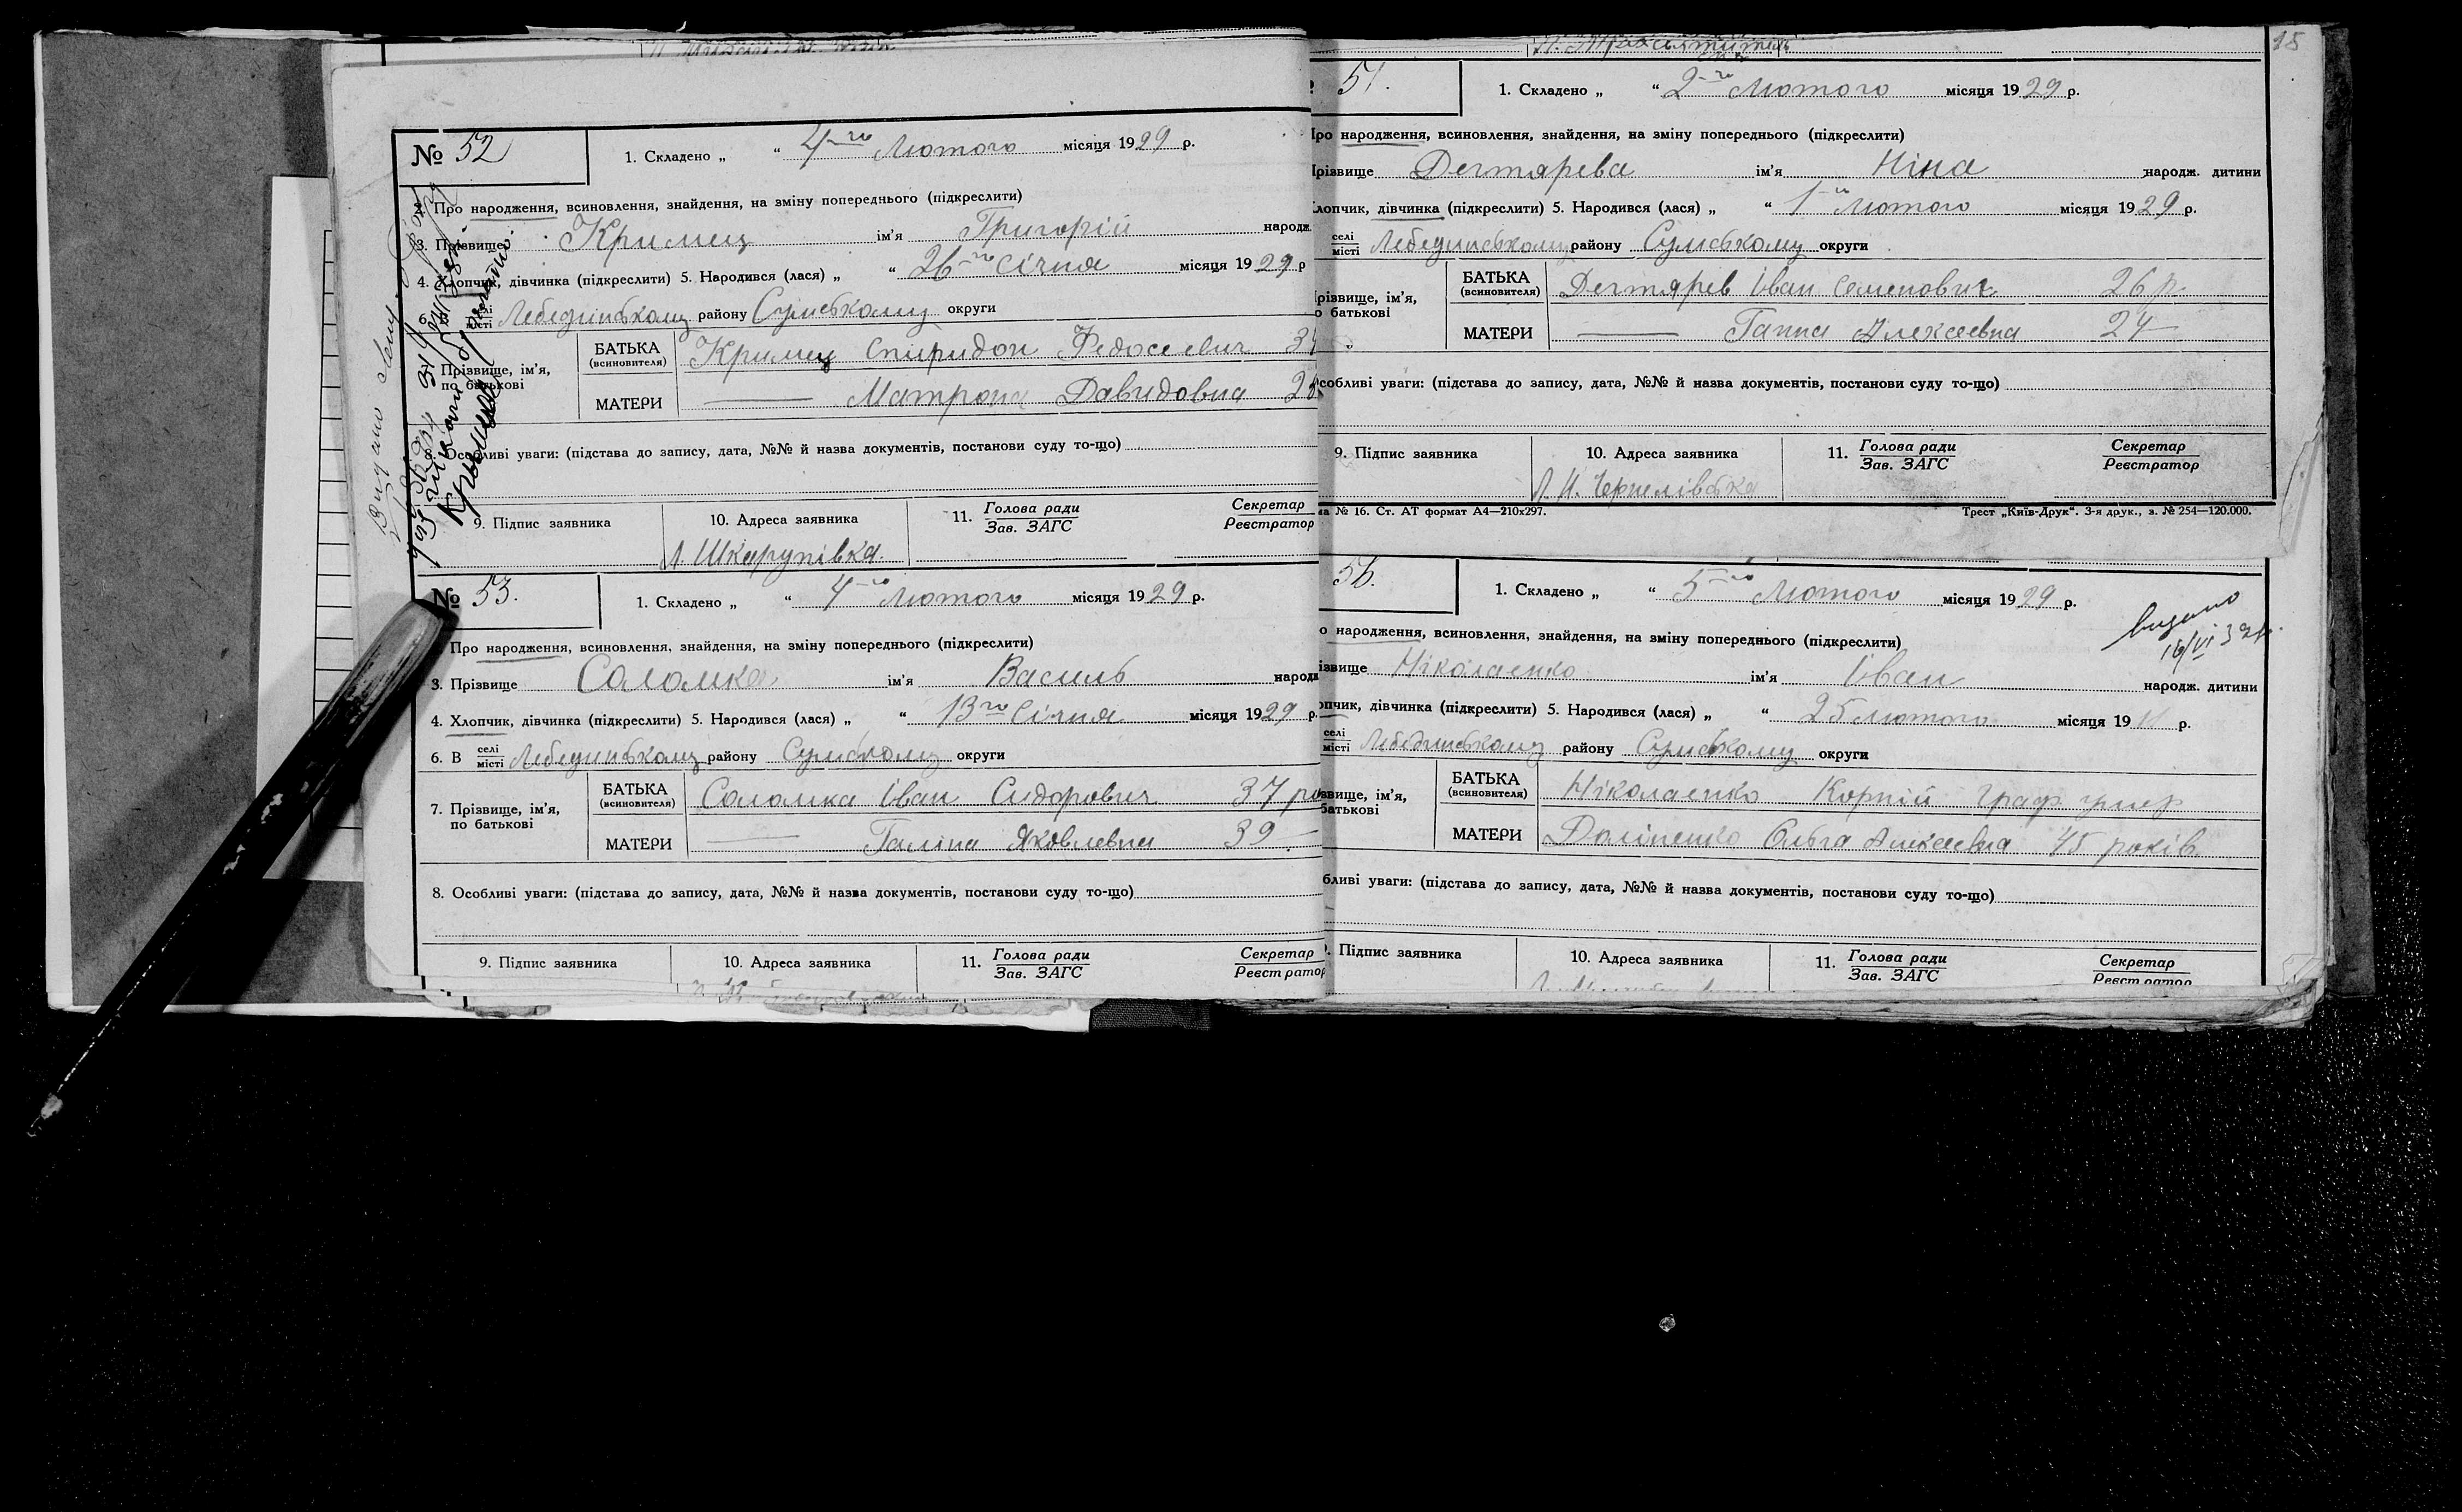 № 52
1. Складено „ “ 4-го Лютого місяця 1929 р.
2. Про народження, всиновлення, знайдення, на зміну попереднього (підкреслити)
3. Прізвище Кримец ім'я Григорій народж
4. Хлопчик, дівчинка (підкреслити) 5. Народився (лася) „ “ 26-го Січня місяця 1929 р
6. В селі місті Лебединському району Сумському округи
7. Прізвище, ім'я, по батькові
БАТЬКА (всиновителя) Кримец Спиридон Федосеевич
МАТЕРИ —— Матрона Давидовна
8. Особливі уваги: (підстава до запису, дата, №№ й назва документів, постанови суду то-що)
9. Підпис заявника 10. Адреса заявника 11. Голова ради Зав. ЗАГС Секретар Реєстратор
Л. Шкарупівка.
Видано
№ 53.
1. Складено „ “ 4-го Лютого місяця 1929 р.
Про народження, всиновлення, знайдення, на зміну попереднього (підкреслити)
3. Прізвище Соломка ім'я Василь народж
4. Хлопчик, дівчинка (підкреслити) 5. Народився (лася) „ “ 13го Січня місяця 1929 р.
6. В селі місті Лебединському району Сумському округи
7. Прізвище, ім'я, по батькові
БАТЬКА (всиновителя) Соломка Іван Сидорович 37 ро
МАТЕРИ —— Галіна Яковлевна 39 —
8. Особливі уваги: (підстава до запису, дата, №№ й назва документів, постанови суду то-що)
9. Підпис заявника 10. Адреса заявника 11. Голова ради Зав. ЗАГС Секретар Реєстратор
15
51.
1. Складено „ “ 2-го Лютого місяця 1929 р.
Про народження, всиновлення, знайдення, на зміну попереднього (підкреслити)
Прізвище Дегтярева ім'я Ніна народж. дитини
Хлопчик, дівчинка (підкреслити) 5. Народився (лася) „ “ 1-го Лютого місяця 1929 р.
селі місті Лебединському району Сумському округи
Прізвище, ім'я, по батькові
БАТЬКА (всиновителя) Дегтярев Іван Семенович 26 р
МАТЕРИ —— Ганна Алексеевна 24 —
Особливі уваги: (підстава до запису, дата, №№ й назва документів, постанови суду то-що)
9. Підпис заявника 10. Адреса заявника 11. Голова ради Зав. ЗАГС Секретар Реєстратор
№ 16. Ст. АТ формат А4—210х297. Трест „Київ-Друк“. 3-я друк., з. № 254—120.000.
56.
1. Складено „ “ 5-го Лютого місяця 1929 р.
видано
16/VI 32р.
о народження, всиновлення, знайдення, на зміну попереднього (підкреслити)
ізвище Ніколаенко ім'я Іван народж. дитини
опчик, дівчинка (підкреслити) 5. Народився (лася) „ “ 25 Лютого місяця 1911 р.
селі місті Лебединському району Сумському округи
звище, ім'я, батькові
БАТЬКА (всиновителя) Ніколаенко Корній
МАТЕРИ Ольга Алексеевна 45 років.
бливі уваги: (підстава до запису, дата, №№ й назва документів, постанови суду то-що)
9. Підпис заявника 10. Адреса заявника 11. Голова ради Зав. ЗАГС Секретар Реєстратор